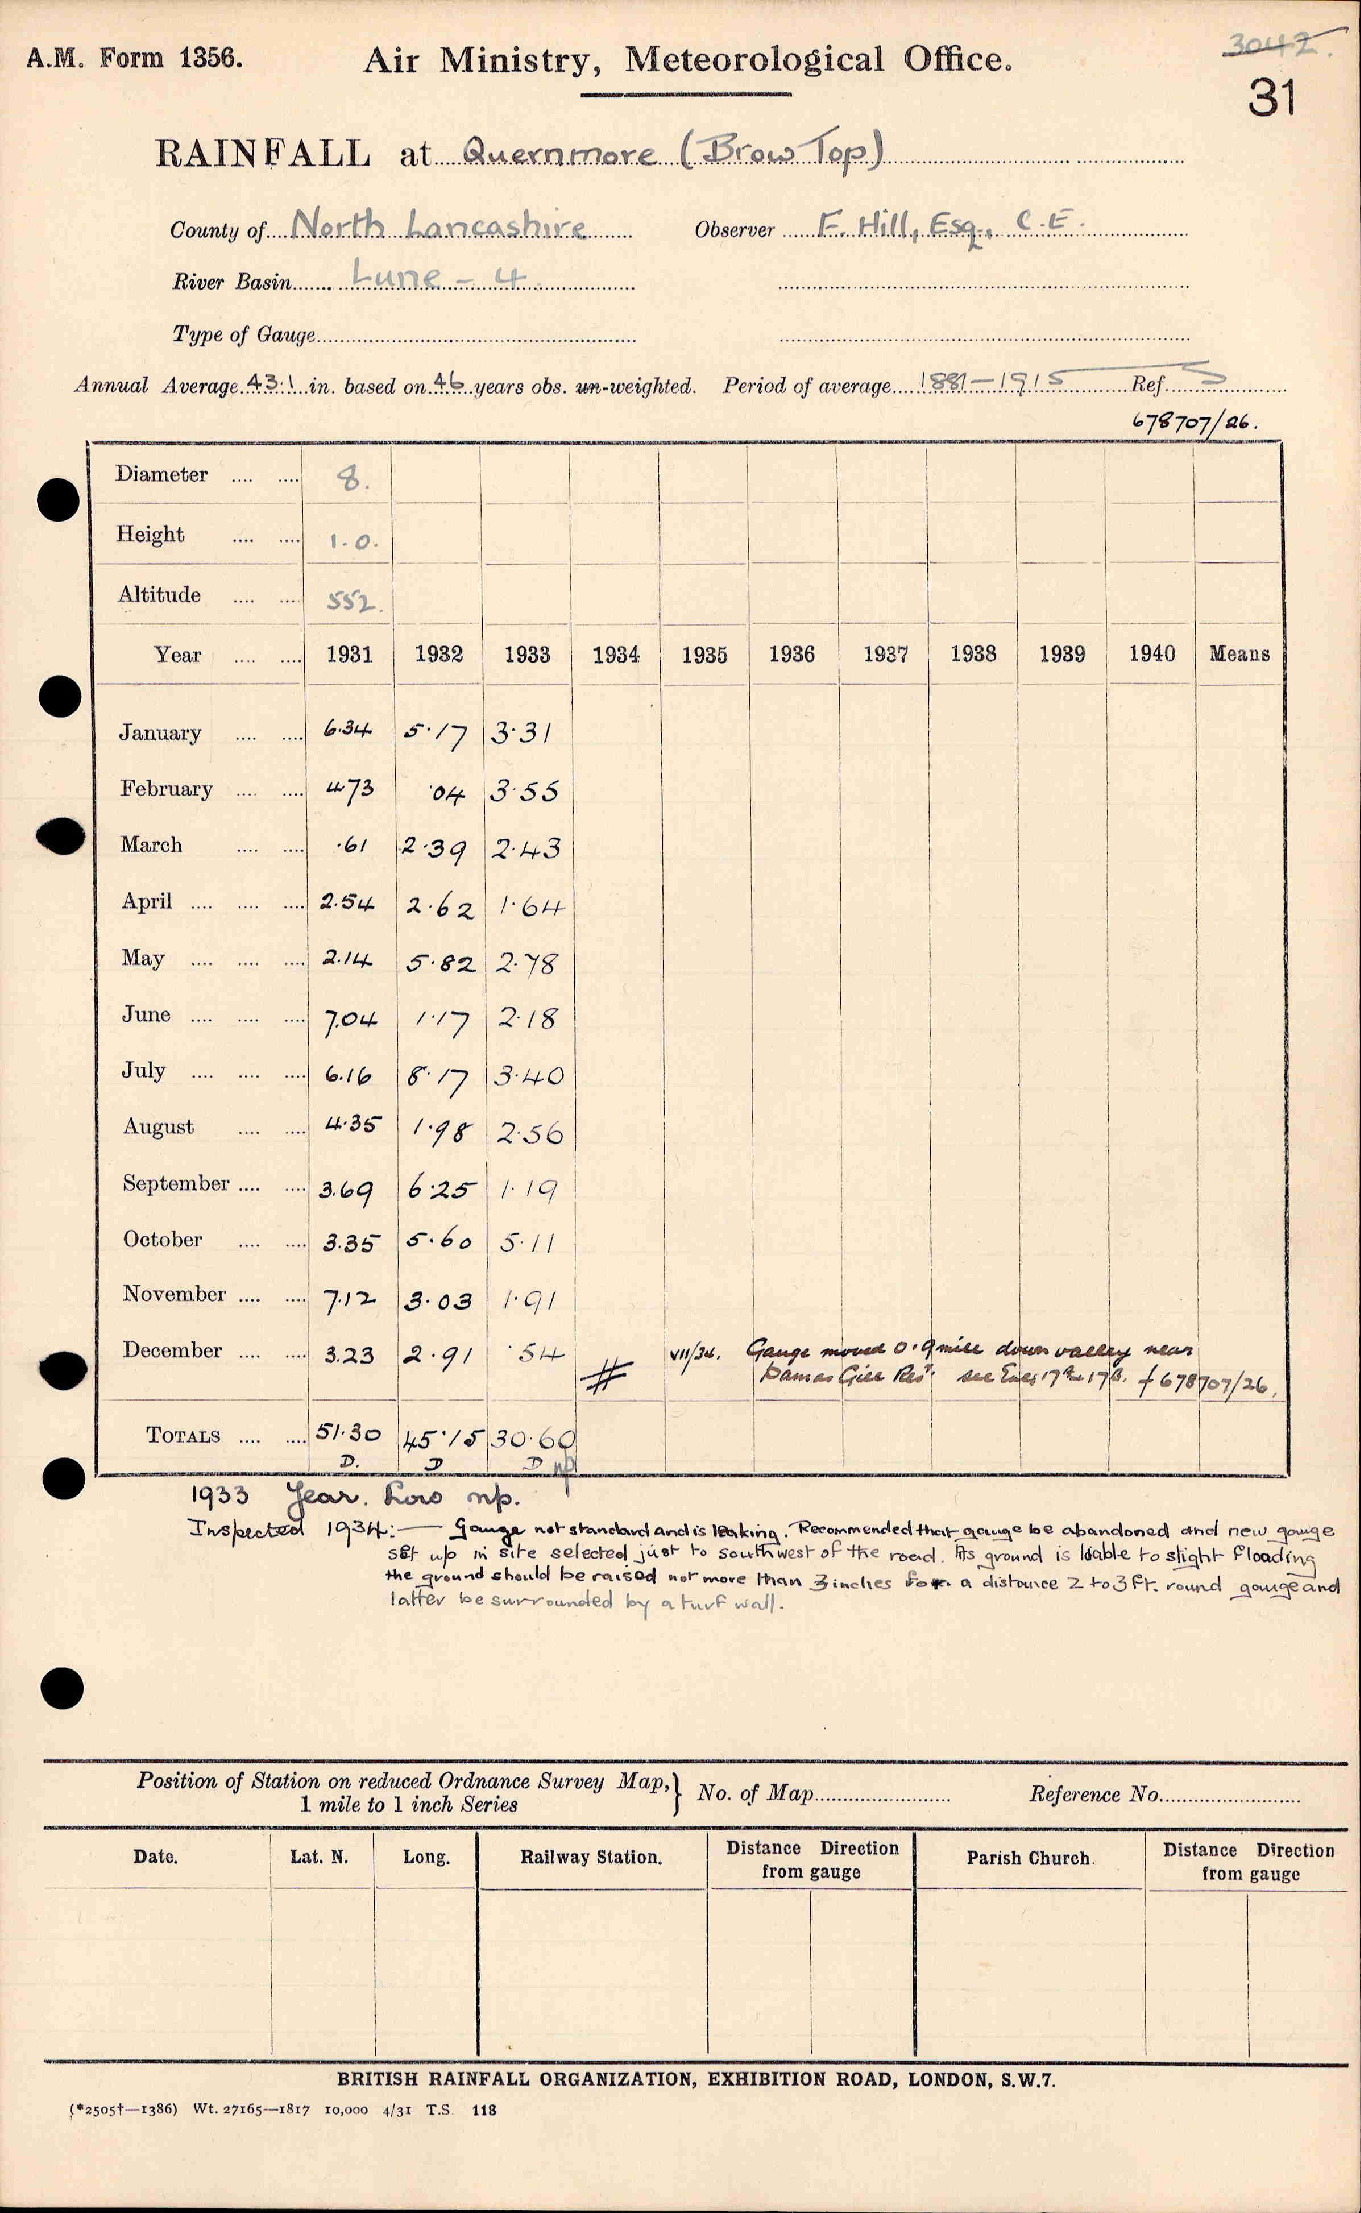 3042.
A.M. Form 1356. Air Ministry, Meteorological Office.
31
RAINFALL at Quernmore (Brow Top)
County of North Lancashire Observer F. Hill, Esq., C.E.
River Basin Lune - 4
Type of Gauge
Annual Average 43.1 in. based on 46 years obs. un-weighted. Period of average 1881-1915 Ref. S
678707/26.
Diameter 8.
Height 1.0.
Altitude 552.
Year 1931 1932 1933 1934 1935 1936 1937 1938 1939 1940 Means
January 6.34 5.17 3.31
February 4.73 .04 3.55
March .61 2.39 2.43
April 2.54 2.62 1.64
May 2.14 5.82 2.78
June 7.04 1.17 2.18
July 6.16 8.17 3.40
August 4.35 1.98 2.56
September 3.69 6.25 1.19
October 3.35 5.60 5.11
November 7.12 3.03 1.91
December 3.23 2.91 .54 # VII/34. Gauge moved 0.9 mile down valley near
Damas Gill Resr. see 17 17 f 678707/26.
TOTALS 51.30 45.15 30.60
D. D D np
1933 Year. Low np.
Inspected 1934:— Gauge not standard and is leaking. Recommended that gauge be abandoned and new gauge
set up in site selected just to southwest of the road. As ground is liable to slight flooding
the ground should be raised not more than 3 inches for a distance 2 to 3 ft. round gauge and
latter be surrounded by a turf wall.
Position of Station on reduced Ordnance Survey Map, } No. of Map Reference No.
1 mile to 1 inch Series
Date. Lat. N. Long. Railway Station. Distance Direction from gauge Parish Church. Distance Direction from gauge
BRITISH RAINFALL ORGANIZATION, EXHIBITION ROAD, LONDON, S.W.7.
(*2505†—1386) Wt. 27165—1817 10,000 4/31 T.S. 118